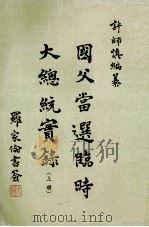 許師慎編纂
國父當選臨時
大總統實錄
(上冊)
羅家倫書簽